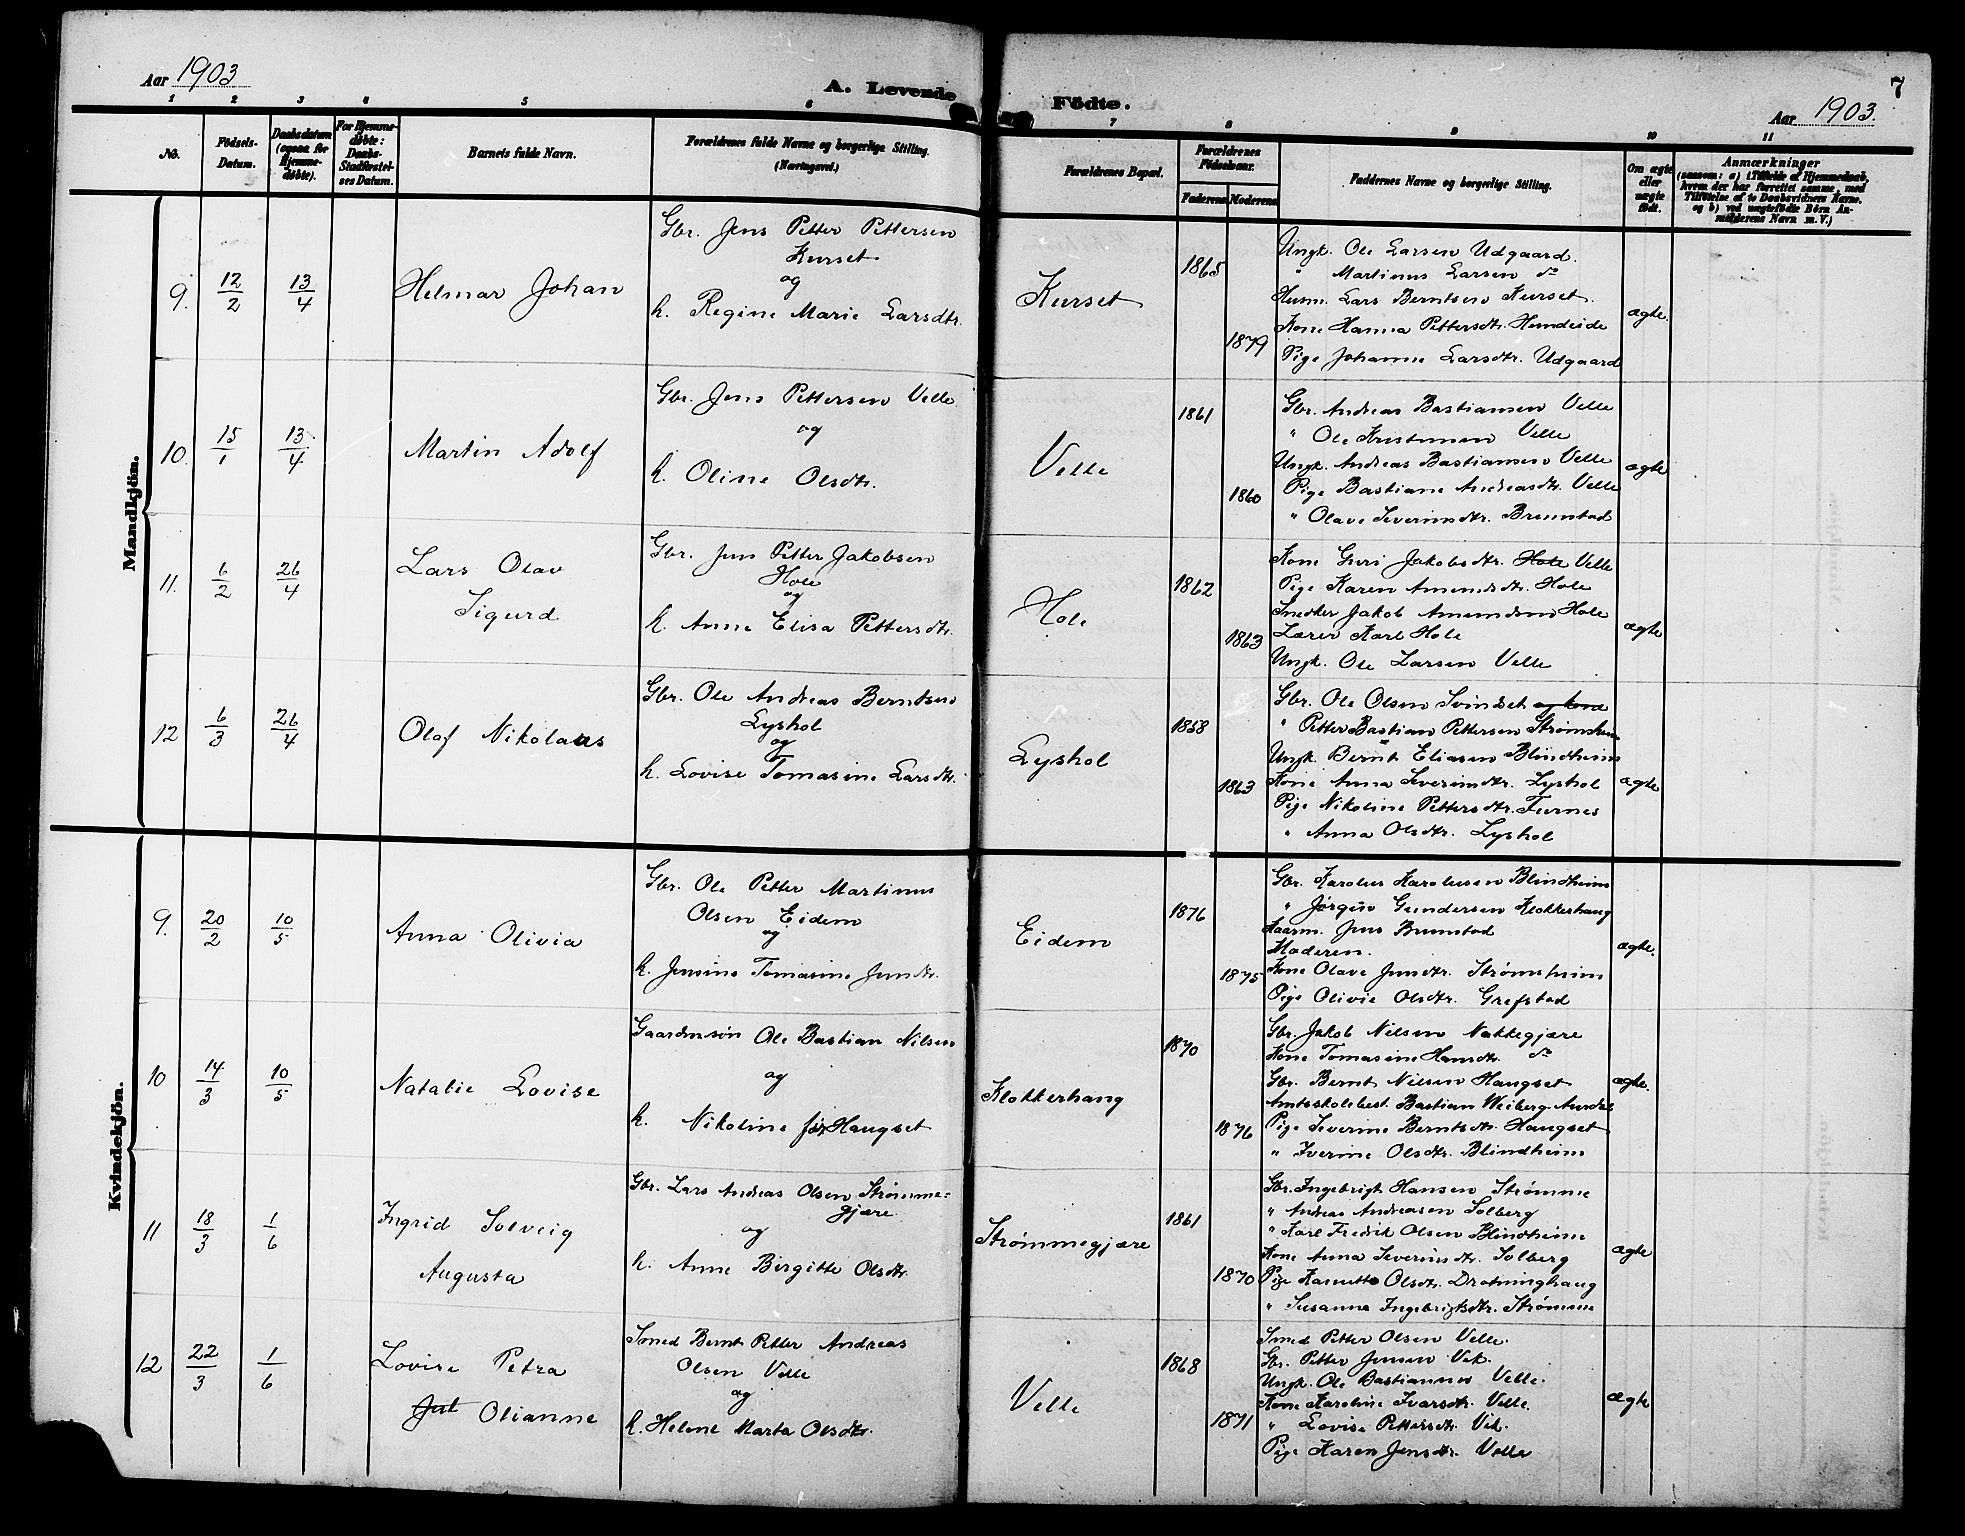 Aar 1903
A. Levende Födte.
7
Aar 1903.
1 2 3 4 5 6 7 8 9 10 11
No.
Födsels-
Datum.
Daabsdatum
(ogsaa for
Hjemme-
döbte).
For Hjemme-
döbte:
Daabs-
Stadfæstel-
ses Datum.
Barnets fulde Navn.
Forældrenes fulde Navne og borgerlige Stilling.
(Næringsvei.)
Forældrenes Bopæl.
Forældrenes
Födselsaar.
Faderens Moderens
Faddernes Navne og borgerlige Stilling.
Om ægte
eller
uægte
födt.
Anmærkninger
(saasom: a) i Tilfælde af Hjemmedaab,
hvem der har forrettet samme, med
Tilföielse af to Daabsvidners Navne,
og b) ved uægtefödte Börn An-
melderens Navn m. V.)
Mandkjön.
9. 12/2 13/4
Helmar Johan
Gbr. Jens Petter Pettersen
Kurset
og
h. Regine Marie Larsdtr.
Kurset
1865
1879
Ungk. Ole Larsen Udgaard.
" Martinus Larsen do
Husm. Lars Berntsen Kurset.
Kone Hanna Pettersdtr. Hundeide
Pige Johanne Larsdtr. Udgaard
ægte.
10. 15/1 13/4
Martin Adolf
Gbr. Jens Pettersen Velle
og
h. Oline Olsdtr.
Velle
1861
1860
Gbr. Andreas Bastiansen Velle
" Ole Kristensen Velle
Ungk. Andreas Bastiansen Velle
Pige Bastiane Andreasdtr. Velle
" Olave Severinsdtr. Brunstad
ægte
11. 6/2 26/4
Lars Olav
Sigurd
Gbr. Jens Petter Jakobsen
Hole
og
h. Anne Elisa Pettersdtr.
Hole
1862
1863
Kone Guri Jakobsdtr. Hole Velle
Pige Karen Amundsdtr. Hole
Snedker Jakob Amundsen Hole
Lærer Karl Hole
Ungk. Ole Larsen Velle
ægte
12 6/3 26/4
Olaf Nikolaus
Gbr. Ole Andreas Berntsen
Lyshol
og
h. Lovise Tomasine Larsdtr.
Lyshol
1858
1863
Gbr. Ole Olsen Svindset og kone
" Petter Bastian Pettersen Strømsheim
Ungk. Bernt Eliasen Blindheim
Kone Anna Severinsdtr. Lyshol
Pige Nikoline Pettersdtr. Furnes
" Anna Olsdtr. Lyshol
ægte
Kvindekjön.
9. 20/2 10/5
Anna Olivia
Gbr. Ole Petter Martinus
Olsen Eidem
og
h. Jensine Tomasine Jensdtr.
Eidem
1876
1875
Gbr. Karolus Karolusen Blindheim
" Jørgen Gundersen Klokkerhaug
Gaarm. Jens Brunstad
Moderen.
Kone Olave Jensdtr. Strømsheim
Pige Olivie Olsdtr. Grefstad
ægte.
10 14/3 10/5
Natalie Lovise
Gaardmsøn Ole Bastian Nilsen
og
h. Nikoline Haugset
Klokkerhaug
1870
1876
Gbr. Jakob Nilsen Nakkegjære
Kone Tomasine Hansdtr. do
Gbr. Bernt Nilsen Haugset
Amtsskolebest. Bastian Weiberg-Aurdal
Pige Severine Berntsdtr. Haugset
" Iverine Olsdtr. Blindheim
ægte.
11 18/3 1/6
Ingrid Solveig
Augusta
Gbr. Lars Andreas Olsen Strømme-
gjære
og
h. Anne Birgitte Olsdtr.
Strømmegjære
1861
1870
Gbr. Ingebrigt Hansen Strømme
" Andreas Andreasen Solberg
" Karl Fredrik Olsen Blindheim
Kone Anna Severinsdtr. Solberg
Pige Olsdtr. Drotninghaug
" Susanna Ingebrigtsdtr. Strømme
ægte
12 22/3 1/6
Lovise Petra
Jul Olianne
Smed Bernt Petter Andreas
Olsen Velle
og
h. Helene Marta Olsdtr.
Velle
1868
1871
Smed Petter Olsen Velle.
Gbr. Petter Jensen Vik.
Ungk. Ole Bastiannes Velle.
Kone Karoline Ivarsdtr. Velle.
" Lovise Pettersdtr. Vik.
Pige Karen Jensdtr. Velle
ægte